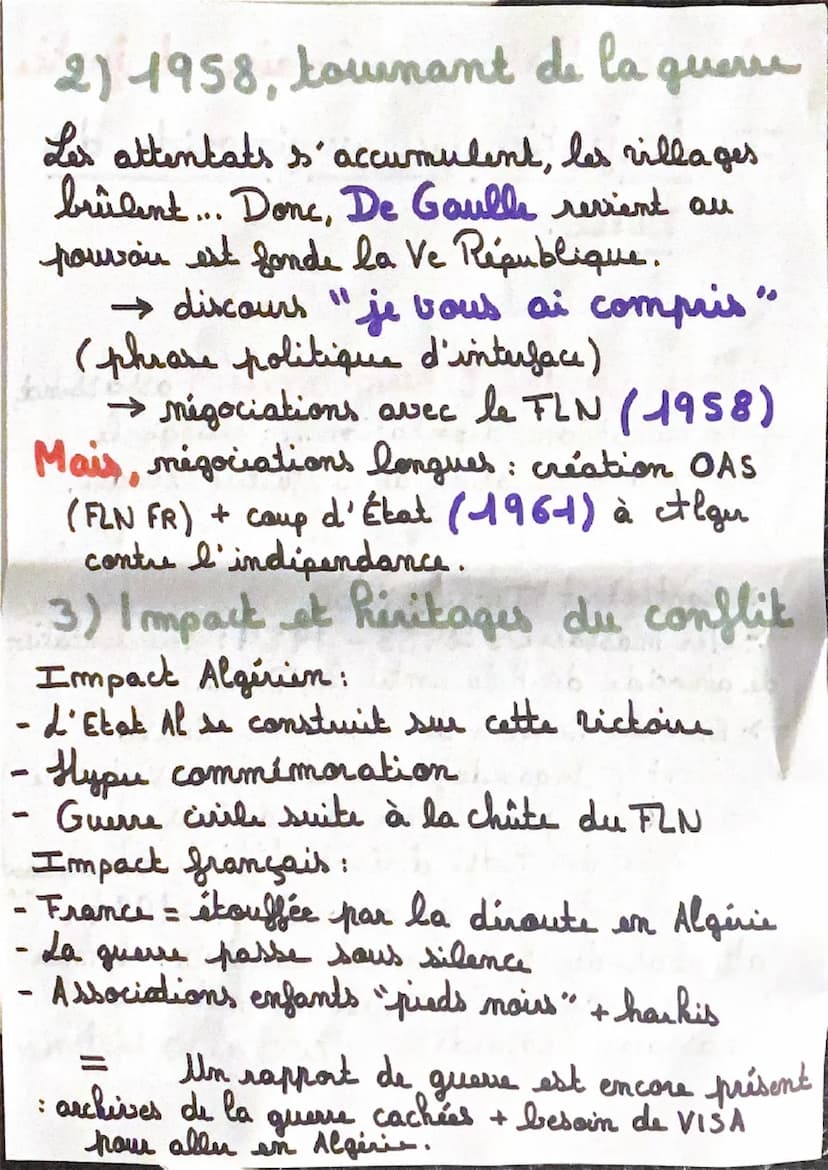 2) 1958, tournant de la guerre
Les attentats s'accumulent, les villages
brûlent... Donc, De Gaulle revient au
pouvoir est fonde la Ve République.
→ discours "je vous ai compris"
(phrase politique d'interface)
→ négociations avec le FLN (1958)
Mais, négociations longues : création OAS
(FLN FR) + coup d'État (1961) à Alger
contre l'indépendance.
3) Impact et héritages du conflit
Impact Algérien :
- L'Etat Al se construit sur cette victoire
- Hyper commémoration
- Guerre civile suite à la chûte du FLN
Impact français :
- France = étouffée par la déroute en Algérie
- La guerre passe sous silence
- Associations enfants "pieds noirs" + harkis
= Un rapport de guerre est encore présent
: archives de la guerre cachées + besoin de VISA
pour aller en Algérie.